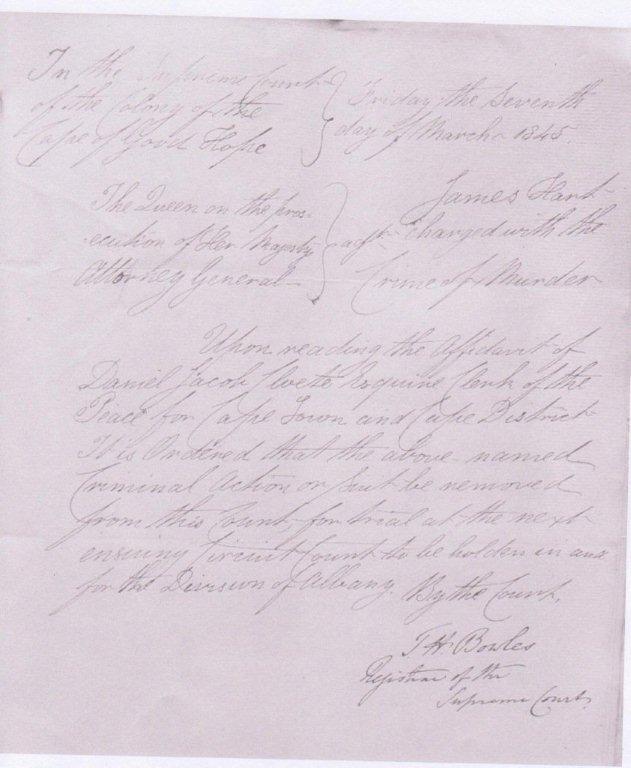 In the Supreme Court
of the Colony of the
Cape of Good Hope
Friday the Seventh
day of March 1845.
The Queen on the pros-
ecution of Her Majesty
Attorney General
agst
James Hart
charged with the
Crime of Murder
Upon reading the Affidavit of
Daniel Jacob Cloete Esquire Clerk of the
Peace for Cape Town and Cape District
It is Ordered that the above named
Criminal Action or Suit be removed
from this Court for trial at the next
ensuing Circuit Court to be holden in and
for the Division of Albany. By the Court,
T H Bowles
Registrar of the
Supreme Court.